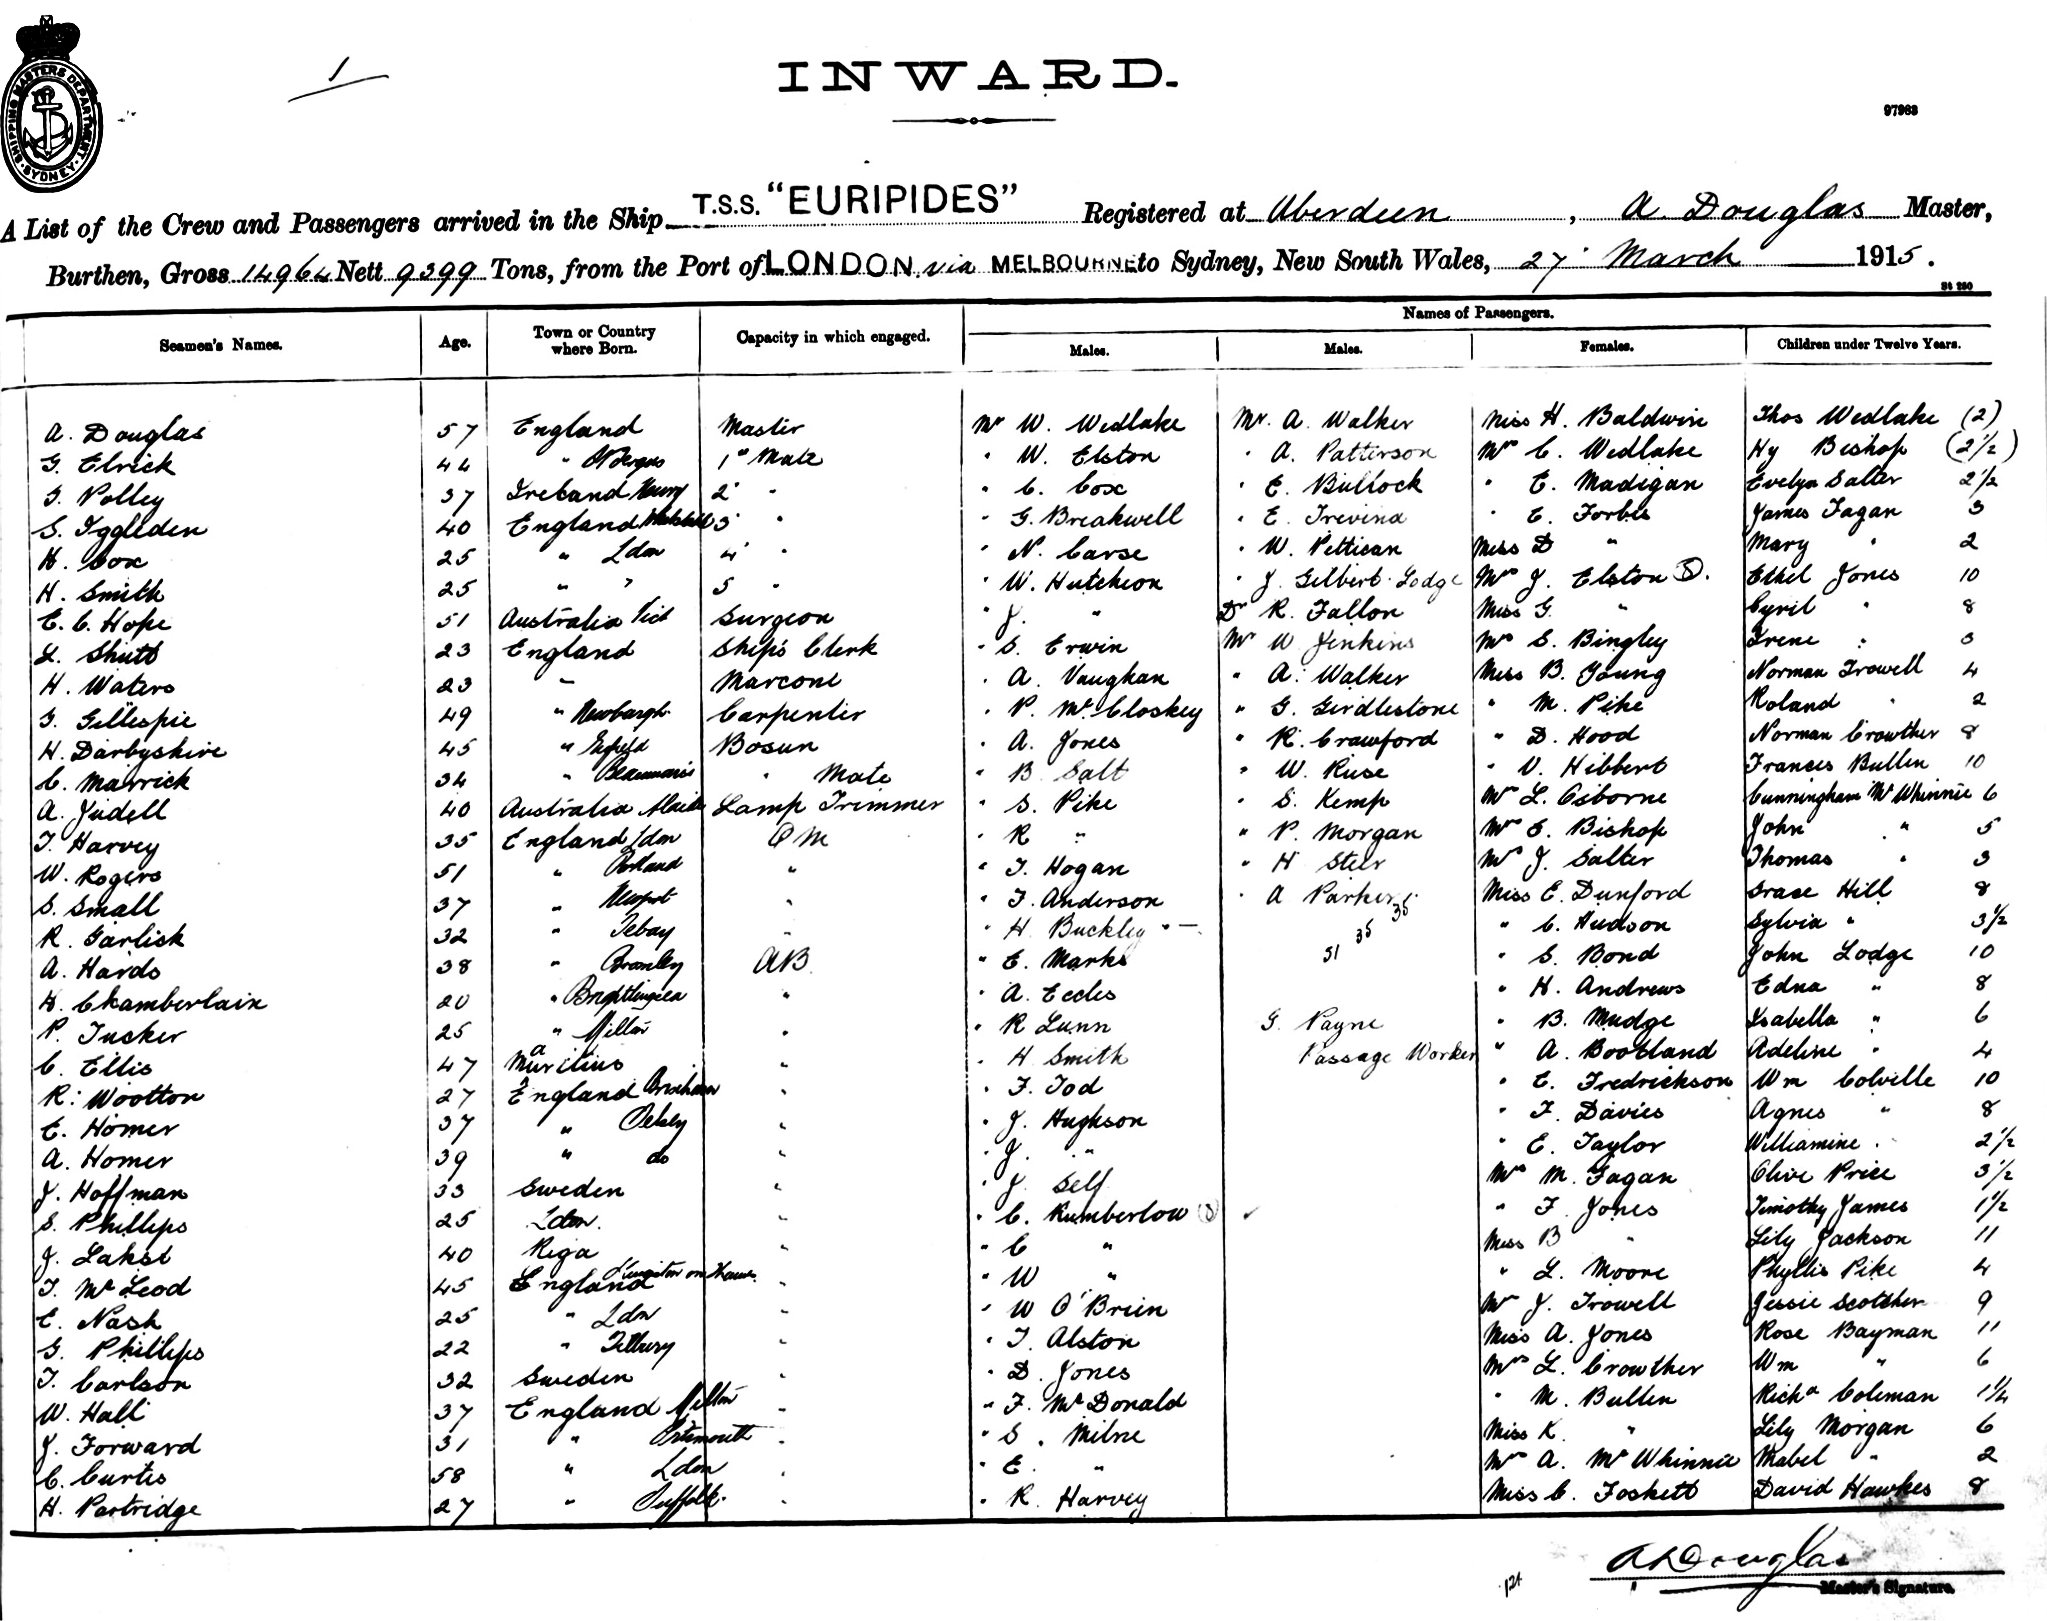 SHIPPING MASTERS DEPARTMENT SYDNEY
1
INWARD.
97963
A List of the Crew and Passengers arrived in the Ship T.S.S. "EURIPIDES" Registered at Aberdeen, A. Douglas Master,
Burthen, Gross 14964 Nett 9399 Tons, from the Port of LONDON via MELBOURNE to Sydney, New South Wales, 27 March 1915.
St 250
Names of Passengers.
Seamen's Names. Age. Town or Country where Born. Capacity in which engaged. Males. Males. Females. Children under Twelve Years.
A. Douglas 57 England Master Mr W. Wedlake Mr. A. Walker Miss H. Baldwin Thos Wedlake (2)
G. Elrick 44 " 1st Mate " W. Elston " A. Patterson Mrs C. Wedlake Hy Bishop (2½)
T. Polley 37 Ireland Newry 2 " " C. Cox " E. Bullock " E. Madigan Evelyn Salter 2½
S. Iggleden 40 England 3 " " G. Breakwell " E. Trevena " E. Forbes James Fagan 3
H. Cox 25 " Ldon 4 " " N. Carse " W. Pettican Miss D " Mary " 2
H. Smith 25 " " 5 " " W. Hutcheon " J. Gilbert-Lodge Mrs J. Elston S. Ethel Jones 10
E. C. Hope 51 Australia Vict Surgeon " J. " Dr R. Fallon Miss G. " Cyril " 8
L. Shutt 23 England Ship's Clerk " S. Erwin Mr W Jenkins Mrs S. Bingley Irene " 3
H. Waters 23 " Marconi " A. Vaughan " A. Walker Miss B. Young Norman Trowell 4
G. Gillespie 49 " Newburgh Carpenter " P. McCloskey " G. Girdlestone " M. Pike Roland " 2
H. Darbyshire 45 " Enfield Bosun " A. Jones " R. Crawford " D. Hood Norman Crowther 8
C. Marrick 34 " Beaumaris " Mate " B. Salt " W. Ruse " V. Hibbert Frances Bullen 10
A. Judell 40 Australia Lamp Trimmer " S. Pike " S. Kemp Mrs L. Osborne Cunningham McWhinnie 6
T. Harvey 35 England Ldon QM " R " " P. Morgan Mrs E. Bishop John " 5
W. Rogers 51 " Portland " " T. Hogan " H Steer Mrs J. Salter Thomas " 3
S. Small 37 " Newport " " T. Anderson " A Parker Miss E. Dunford Grace Hill 8
R. Garlick 32 " Tebay " " H. Buckley " C. Hudson Sylvia " 3½
35
35
51
A. Hards 38 " Bramley AB " E. Marks " S. Bond John Lodge 10
H. Chamberlain 20 " Brightlingsea " " A. Eccles " H. Andrews Edna " 8
P. Tucker 25 " Milton " " R Lunn G. Payne " B. Mudge Isabella " 6
C. Ellis 47 Mauritius " " H Smith Passage Worker " A. Bootland Adeline " 4
R. Wootton 27 England " " F. Tod " E. Fredrickson Wm Colville 10
E. Homer 37 " " " J. Hughson " F. Davies Agnes " 8
A. Homer 39 " do " " J. " " E. Taylor Williamine " 2½
J. Hoffman 33 Sweden " " J. Self Mrs M. Fagan Olive Price 3½
S. Phillips 25 Ldon. " " C. Rumberlow (S) " F. Jones Timothy James 1½
J. Lakst 40 Riga " " C " Miss B " Lily Jackson 11
T. McLeod 45 England Kingston on Thames " " W " " L. Moore Phyllis Pike 4
E. Nash 25 " Ldon " " W O'Brien Mrs J. Trowell Jessie Scotcher 9
G. Phillips 22 " Tilbury " " T. Alston Miss A. Jones Rose Bayman 11
T. Carlson 32 Sweden " " D. Jones Mrs L. Crowther Wm " 6
W. Hall 37 England Milton " " F. McDonald " M. Bullen Richd Coleman 1¼
J. Forward 31 " Portsmouth " " S. Milne Miss K. " Lily Morgan 6
C. Curtis 58 " Ldon " " E. " Mrs A. McWhinnie Mabel " 2
H. Partridge 27 " Suffolk. " " R. Harvey Miss C. Foskett David Hawkes 8
A Douglas
124
Master's Signature.